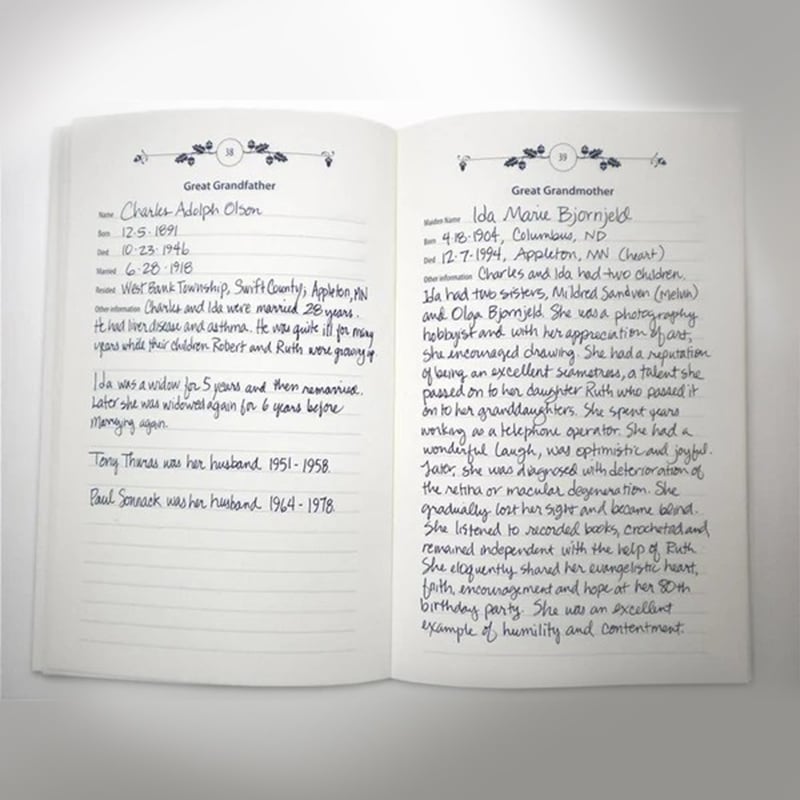 38
Great Grandfather
Name Charles Adolph Olson
Born 12-5-1891
Died 10-23-1946
Married 6-28-1918
Resided West Bank Township, Swift County; Appleton, MN
Other information Charles and Ida were married 28 years.
He had liver disease and asthma. He was quite ill for many
years while their children Robert and Ruth were growing up.
Ida was a widow for 5 years and then remarried.
Later she was widowed again for 6 years before
marrying again.
Tony Thuras was her husband 1951-1958.
Paul Sonnack was her husband 1964-1978.
39
Great Grandmother
Maiden Name Ida Marie Bjornjeld
Born 4-18-1904, Columbus, ND
Died 12-7-1994, Appleton, MN (heart)
Other information Charles and Ida had two children.
Ida had two sisters, Mildred Sandven (Melvin)
and Olga Bjornjeld. She was a photography
hobbyist and with her appreciation of art,
she encouraged drawing. She had a reputation
of being an excellent seamstress, a talent she
passed on to her daughter Ruth who passed it
on to her granddaughters. She spent years
working as a telephone operator. She had a
wonderful laugh, was optimistic and joyful.
Later, she was diagnosed with deterioration of
the retina or macular degeneration. She
gradually lost her sight and became blind.
She listened to recorded books, crocheted and
remained independent with the help of Ruth.
She eloquently shared her evangelistic heart,
faith, encouragement and hope at her 80th
birthday party. She was an excellent
example of humility and contentment.